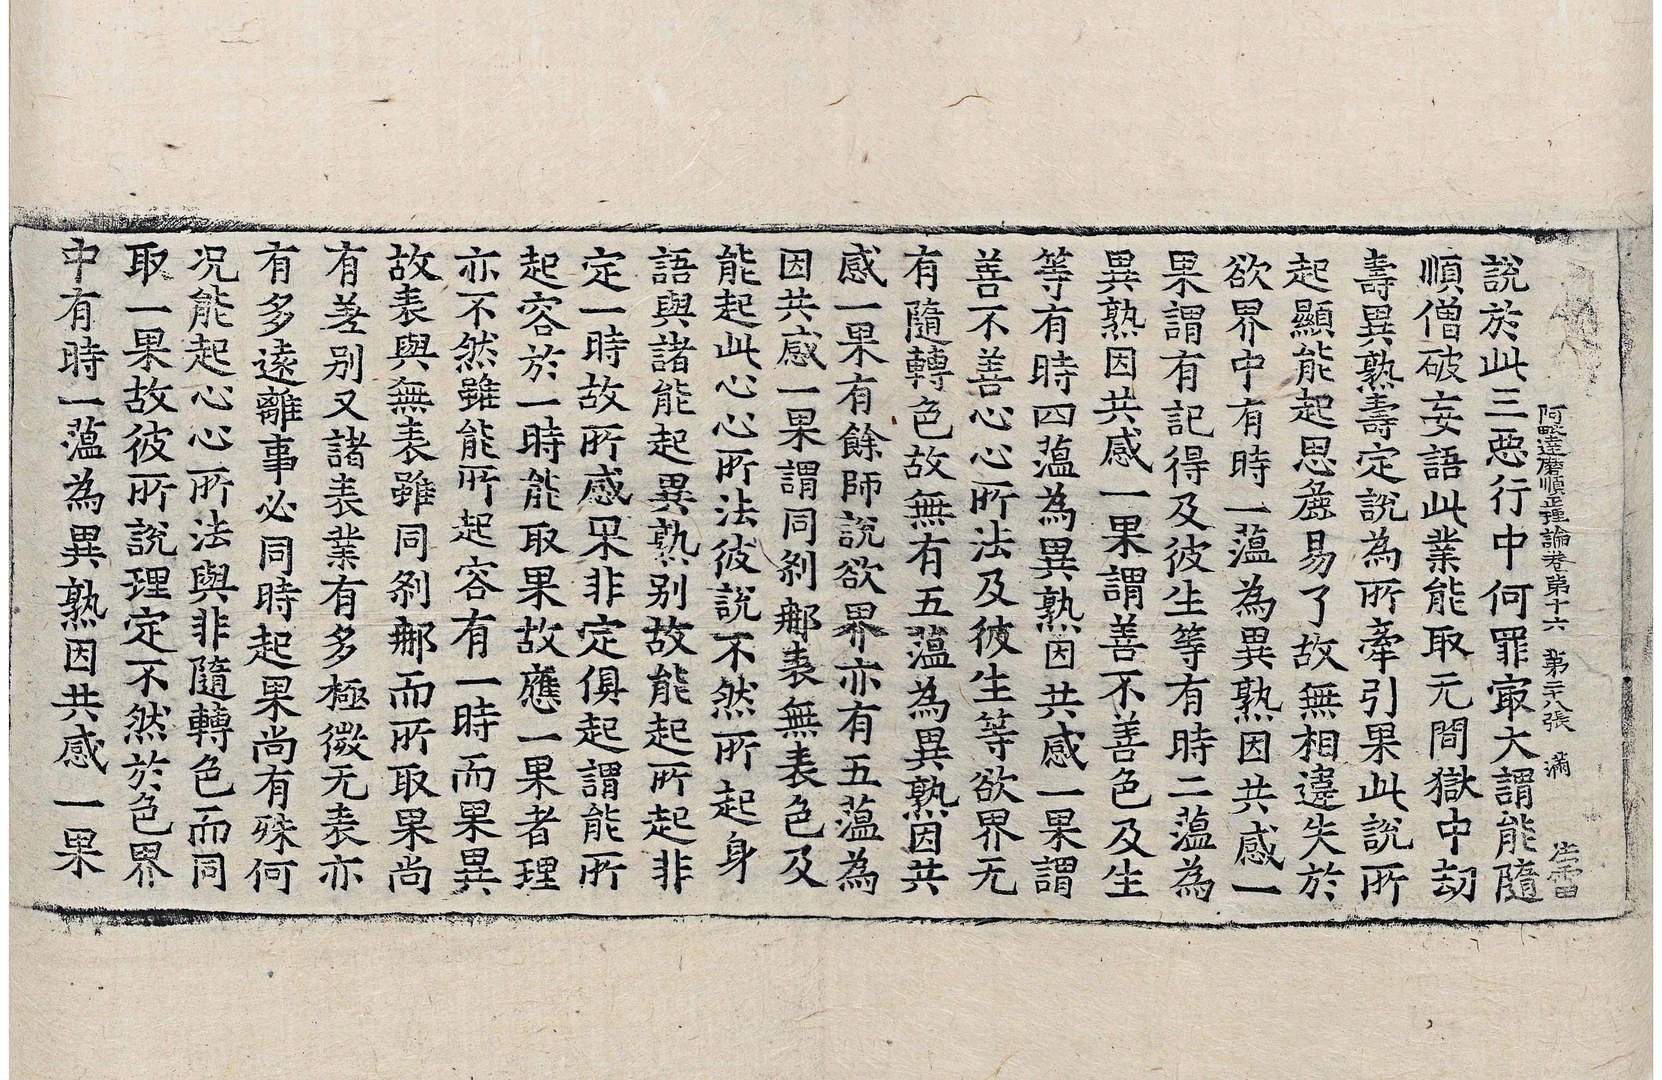 阿毗達磨順正理論卷第十六 第二十八張 滿
說於此三惡行中何罪㝡大謂能隨
順僧破妄語此業能取无間獄中劫
壽異熟壽定說為所牽引果此說所
起顯能起思麁易了故無相違失於
欲界中有時一蘊為異熟因共感一
果謂有記得及彼生等有時二蘊為
異熟因共感一果謂善不善色及生
等有時四蘊為異熟因共感一果謂
善不善心心所法及彼生等欲界无
有隨轉色故無有五蘊為異熟因共
感一果有餘師說欲界亦有五蘊為
因共感一果謂同刹那表無表色及
能起此心心所法彼說不然所起身
語與諸能起異熟別故能起所起非
定一時故所感果非定俱起謂能所
起容於一時能取果故應一果者理
亦不然雖能所起容有一時而果異
故表與無表雖同刹那而所取果尚
有差別又諸表業有多極微无表亦
有多遠離事必同時起果尚有殊何
況能起心心所法與非隨轉色而同
取一果故彼所說理定不然於色界
中有時一蘊為異熟因共感一果